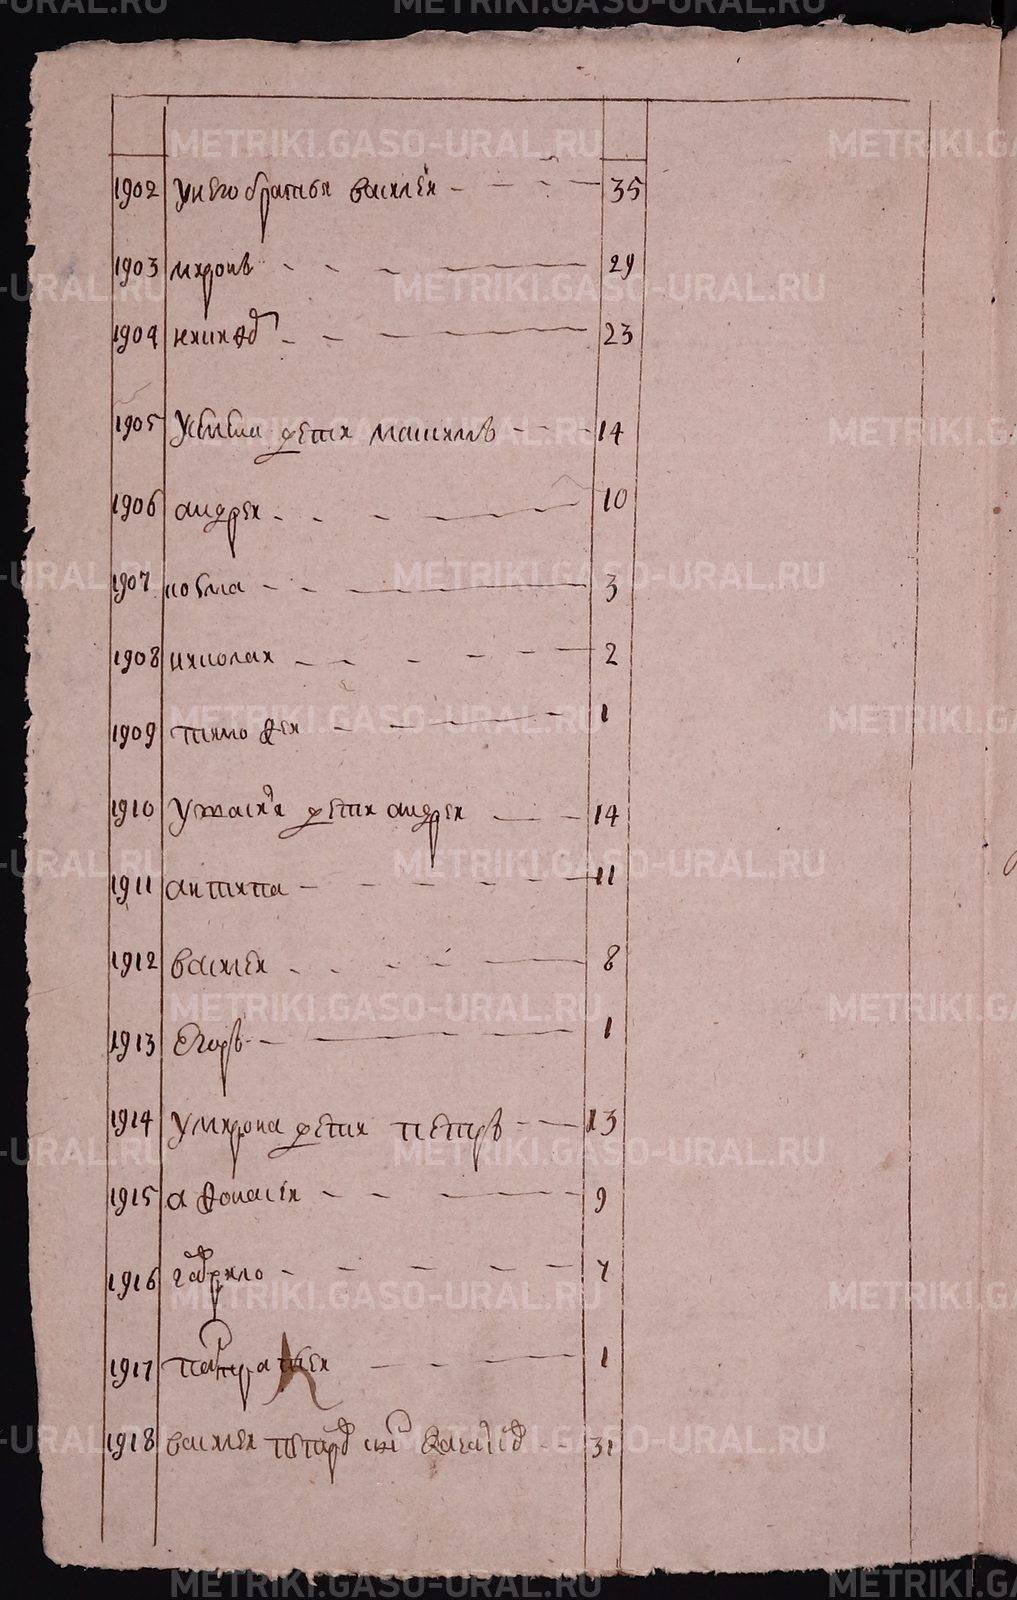 METRIKI.GASO-URAL.RU
1902 У него братья василей 35
1903 миронъ 29
1904 никифоръ 23
1905 У дети максимъ 14
1906 андрей 10
1907 козма 3
1908 николай 2
1909 тимофей 1
1910 У василья дети андрей 14
1911 антипа 11
1912 василей 8
1913 Егоръ 1
1914 У мирона дети петръ 13
1915 афонасей 9
1916 гаврило 7
1917 панкратей 1
1918 василей петровъ снъ 31